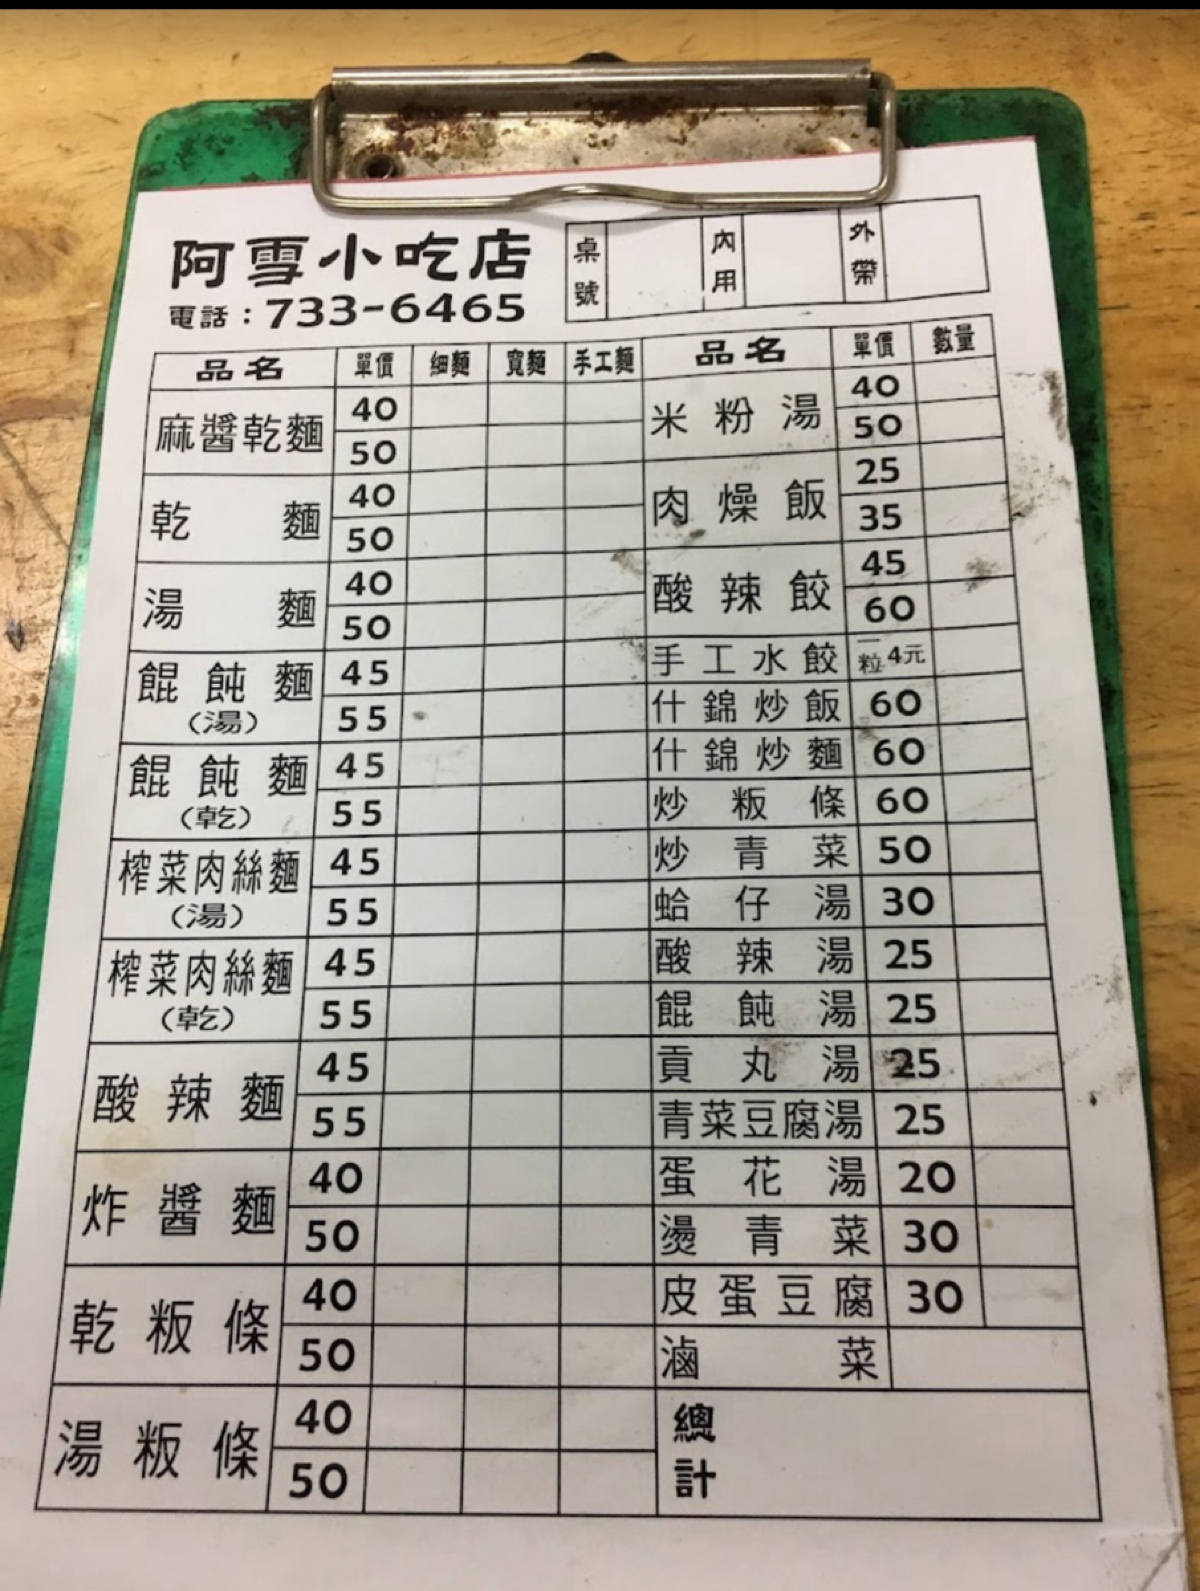 阿雪小吃店
電話：733-6465
桌號 內用 外帶
品名 單價 細麵 寬麵 手工麵
麻醬乾麵 40
50
乾麵 40
50
湯麵 40
50
餛飩麵 45
(湯) 55
餛飩麵 45
(乾) 55
榨菜肉絲麵 45
(湯) 55
榨菜肉絲麵 45
(乾) 55
酸辣麵 45
55
炸醬麵 40
50
乾粄條 40
50
湯粄條 40
50
品名 單價 數量
米粉湯 40
50
肉燥飯 25
35
酸辣餃 45
60
手工水餃 一粒4元
什錦炒飯 60
什錦炒麵 60
炒粄條 60
炒青菜 50
蛤仔湯 30
酸辣湯 25
餛飩湯 25
貢丸湯 25
青菜豆腐湯 25
蛋花湯 20
燙青菜 30
皮蛋豆腐 30
滷菜
總計